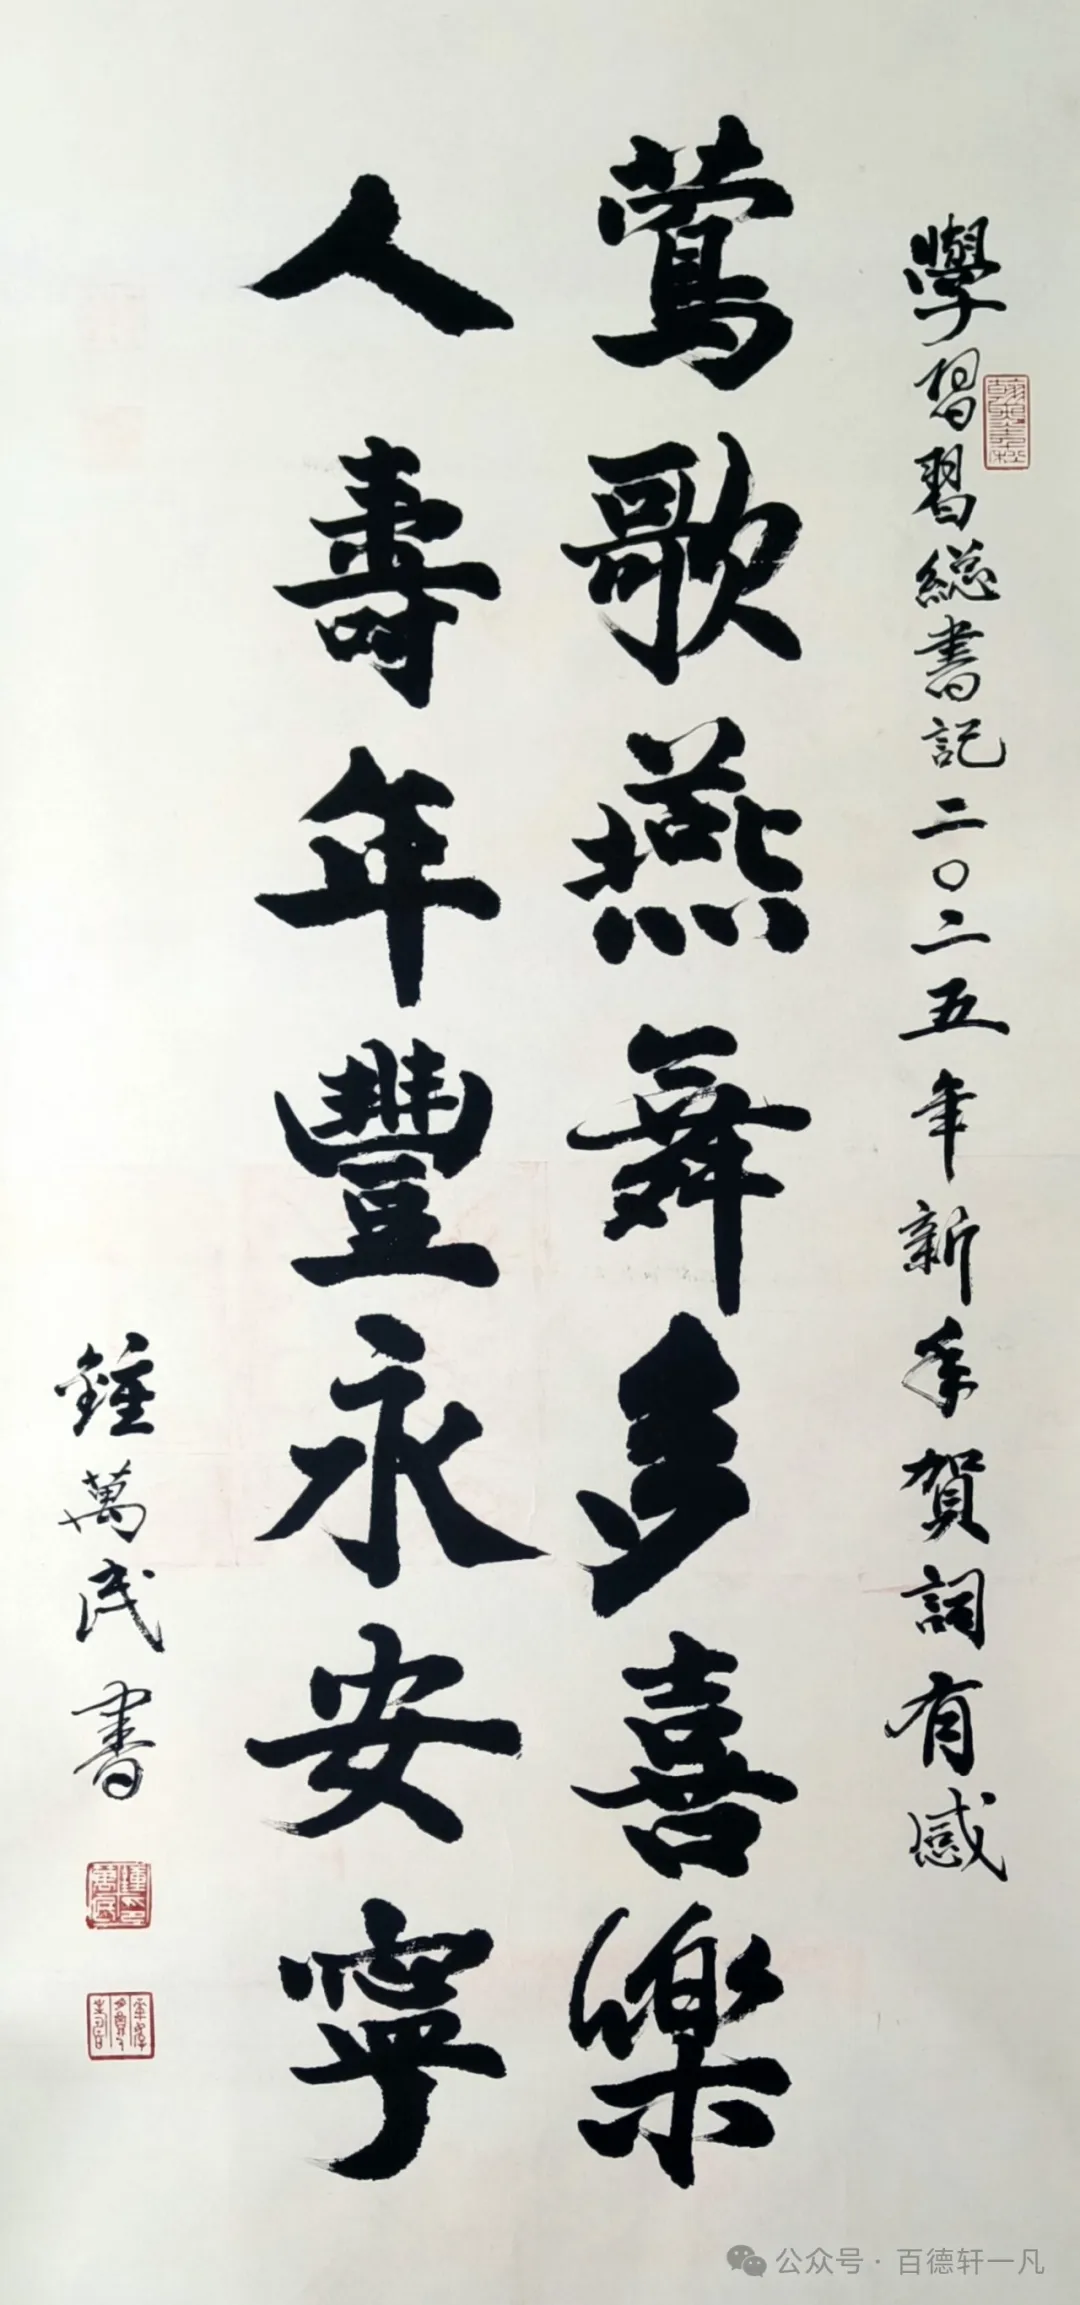 學習習總書記二〇二五年新年賀詞有感
鶯歌燕舞多喜樂
人壽年豐永安寧
鍾萬民書
公众号·百德轩一凡